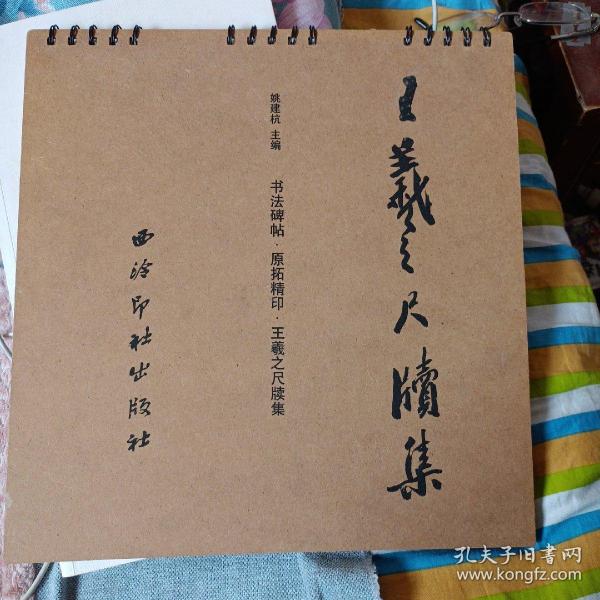 王羲之尺牍集
姚建杭 主编
书法碑帖·原拓精印·王羲之尺牍集
西泠印社出版社
孔夫子旧书网
www.kongfz.com